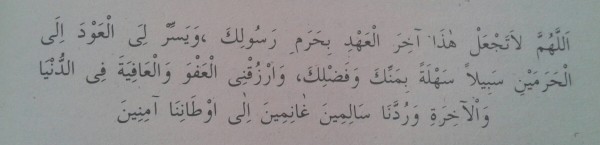 اَللّٰهُمَّ لاَتَجْعَلْ هٰذَا آخِرَ الْعَهْدِ بِحَرَمِ رَسُولِكَ ،وَيَسِّرْ لِى الْعَوْدَ اِلَى
الْحَرَمَيْنِ سَبِيلاً سَهْلَةً بِمَنِّكَ وَفَضْلِكَ، وَارْزُقْنِى الْعَفْوَ وَالْعَافِيَةَ فِى الدُّنْيَا
وَالْآخِرَةِ وَرُدَّنَا سَالِمِينَ غَانِمِينَ اِلٰى اَوْطَانِنَا آمِنِينَ